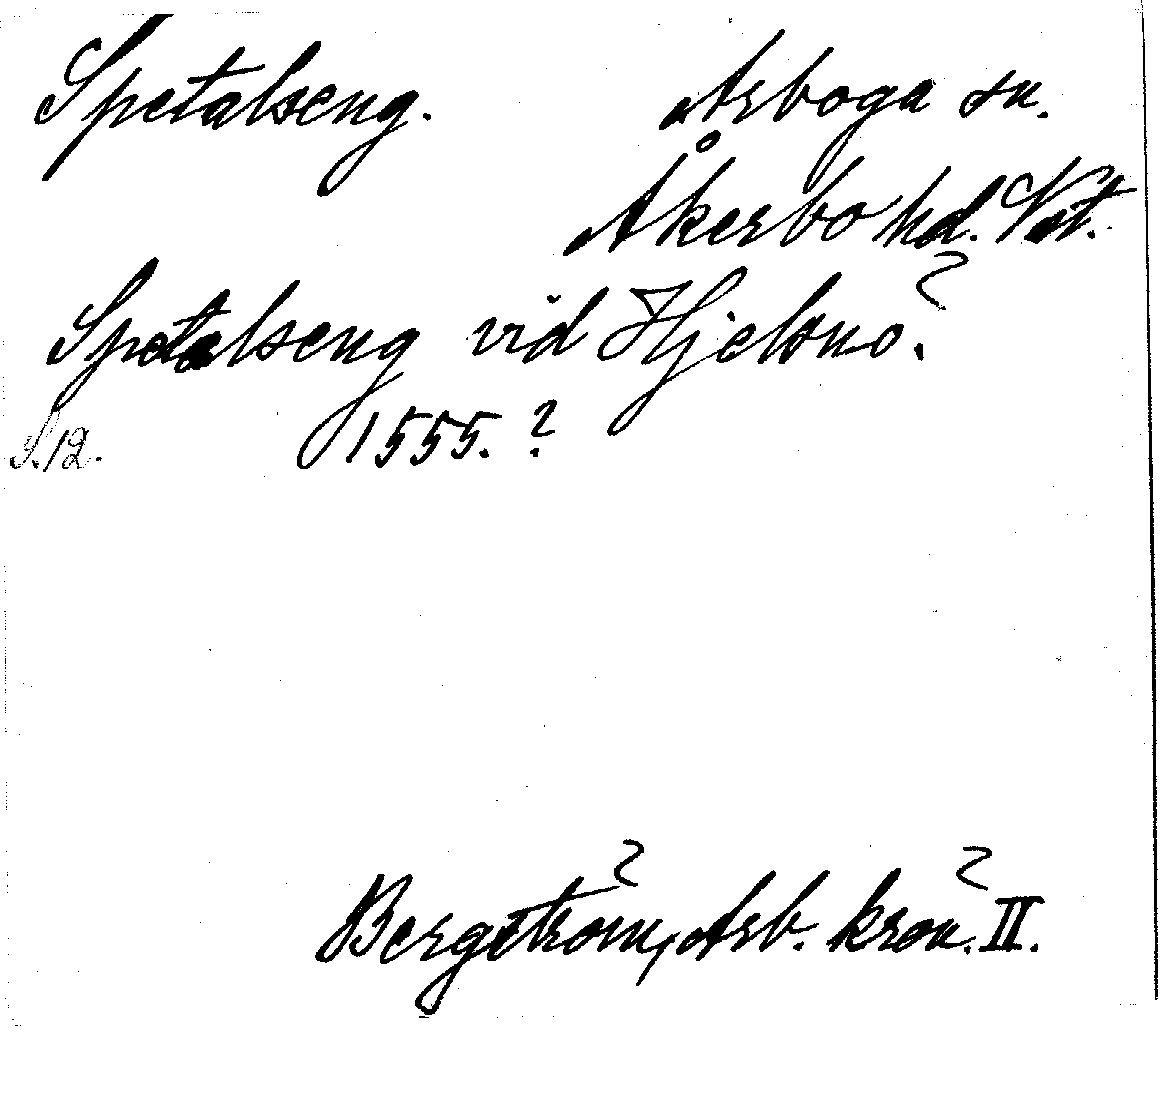 Spetalseng. Arboga sn.
Åkerbo hd. Vstm.
Spetalseng vid Hjelmö.
S.12. 1555.?
Bergström, Arb. krön. II.